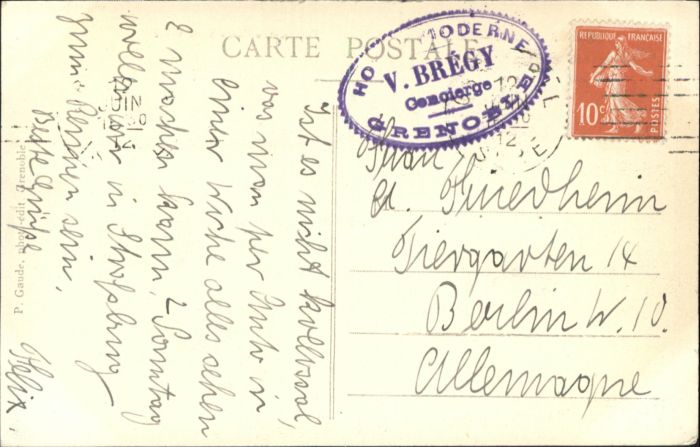 CARTE POSTALE
HO MODERNE
V. BRÉGY
Concierge
GRENOBLE
REPUBLIQUE FRANÇAISE
10c
POSTES
JUIN
12
Frau
A. Friedheim
Tiergarten 14
Berlin W. 10.
Allemagne
Ist es nicht kollossal,
was man per Auto in
einer Woche alles sehen
& machen kann, Sonntag
wollen wir in Straßburg
sein,
Beste Grüße
Felix.
P. Gaude, phot.-édit. Grenoble